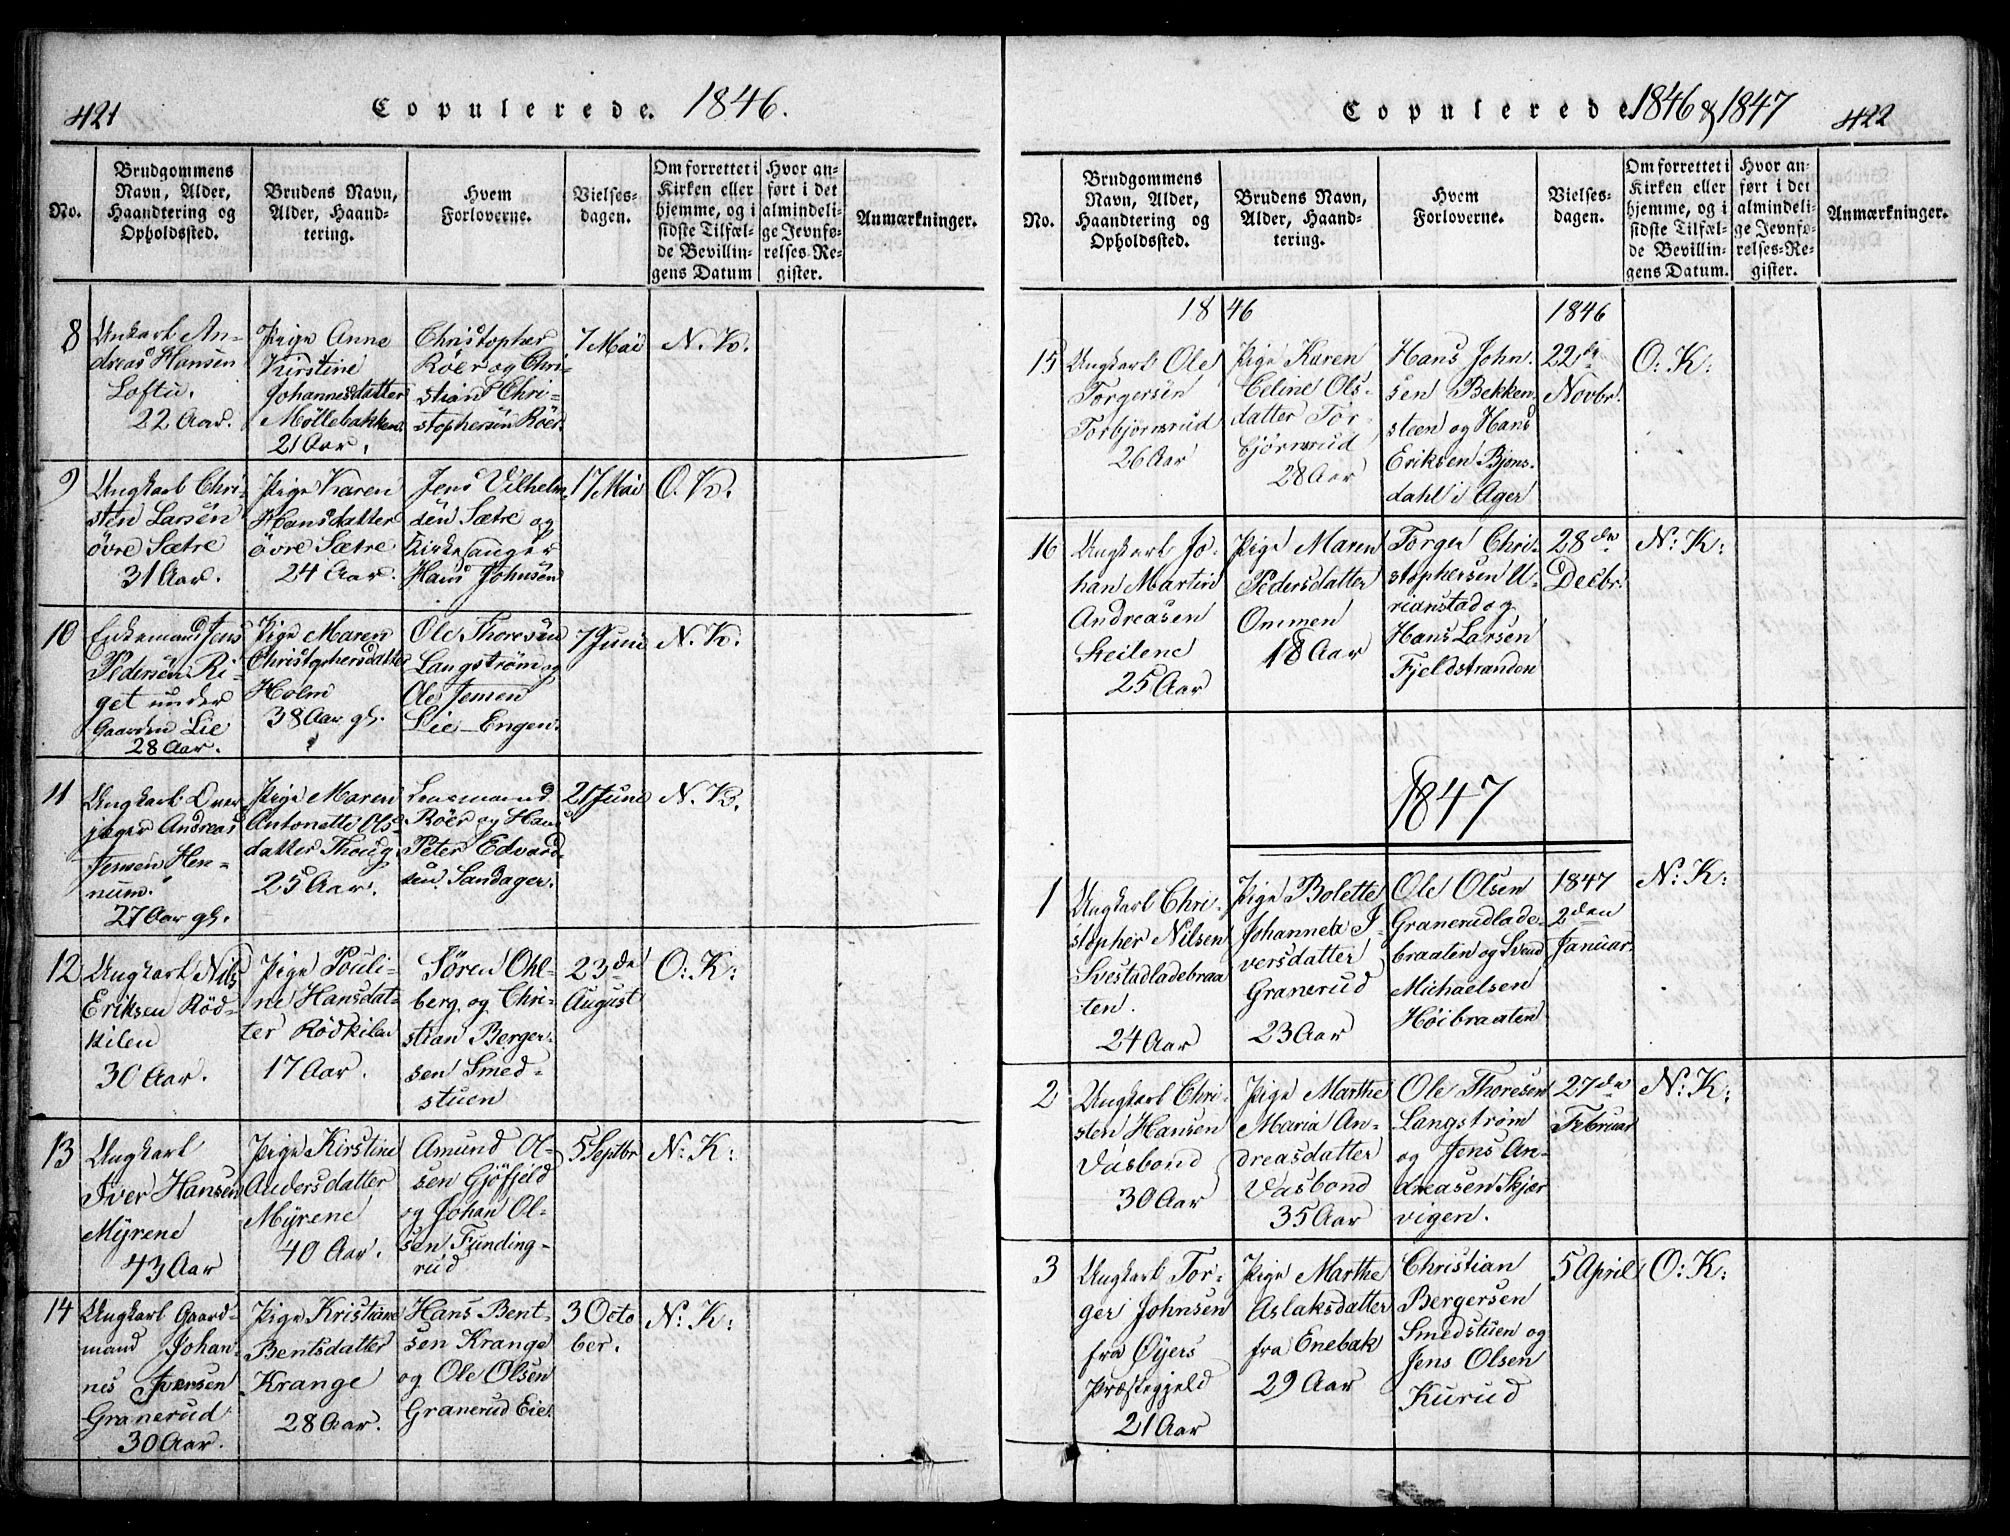 421
Copulerede. 1846.
No.
Brudgommens
Navn, Alder,
Haandtering og
Opholdssted.
Brudens Navn,
Alder, Haand-
tering.
Hvem
Forloverne.
Vielses-
dagen.
Om forrettet i
Kirken eller
hjemme, og i
sidste Tilfæl-
de Bevillin-
gens Datum
Hvor an-
ført i det
almindeli-
ge Jevnfø-
relses-Re-
gister.
Anmærkninger.
8
Unkarl An-
dreas Hansen
Loftu.
22 Aar.
Pige Anne
Kirstine
Johannesdatter
Möllebakken.
21 Aar.
Christopher
Röer og Chri-
stian Chri-
stophersen Röer.
7 Mai
N. K.
9
Ungkarl Chri-
sten Larsen
övre Sætre
31 Aar.
Pige Karen
Hansdatter
övre Sætre
24 Aar.
Jens Vilhelm-
sen Sætre og
Kirkesanger
Hans Johnsen
17 Mai
O. K.
10
Enkemand Jens
Pedersen Ri-
get under
Gaarden Lie
28 Aar.
Pige Maren
Christophersdatter
Holm
38 Aar gl.
Ole Thoresen
Langström og
Ole Jensen
Lie-Engen.
7 Juni
N. K.
11
Ungkarl Over-
jæger Andreas
Jensen Hen-
num.
27 Aar gl.
Pige Maren
Antonette Ols-
datter Thoug
25 Aar.
Lensmand
Röer og Hans
Peter Edvard-
sen Sandager.
21 Juni
N. K.
12
Ungkarl Nils
Eriksen Röd-
kilen
30 Aar.
Pige Pouli-
ne Hansdat-
ter Rödkilen
17 Aar.
Sören Ohl-
berg og Chri-
stian Berger-
sen Smed-
stuen
23de
August
O: K:
13
Ungkarl
Iver Hansen
Myrene
43 Aar
Pige Kirstine
Andersdatter
Myrene
40 Aar.
Amund Ol-
sen Gjöfjeld
og Johan Ol-
sen Funding-
rud
5 Septbr
N: K:
14
Ungkarl Gaard-
mand Johan-
nes Iversen
Granerud
30 Aar.
Pige Kristiane
Bentsdatter
Krange
28 Aar.
Hans Bent-
sen Krange
og Ole Olsen
Granerud Eie.
3 Octo
ber.
N: K:
Copulerede 1846 & 1847
422
No.
Brudgommens
Navn, Alder,
Haandtering og
Opholdssted.
Brudens Navn,
Alder, Haand-
tering.
Hvem
Forloverne.
Vielses-
dagen.
Om forrettet i
Kirken eller
hjemme, og i
sidste Tilfæl-
de Bevillin-
gens Datum.
Hvor an-
ført i det
almindeli-
ge Jevnfø-
relses-Re-
gister.
Anmærkninger.
1846
1846
15
Ungkarl Ole
Torgersen
Torbjörnsrud
26 Aar
Pige Karen
Celine Ols-
datter Tor-
björnsrud
28 Aar
Hans John-
sen Bekken-
steen og Hans
Eriksen Bjons-
dahl i Ager
22de
Novbr.
O: K:
16
Ungkarl Jo-
han Martin
Andreasen
Steilene
25 Aar
Pige Maren
Pedersdatter
Ommen
18 Aar
Torger Chri-
stophersen U-
rianstad og
Hans Larsen
Fjeldstranden
28de
Decbr.
N: K:
1847
1
Ungkarl Chri-
stopher Nilsen
Svestadladebraa
ten.
24 Aar
Pige Bolette
Johanne I-
versdatter
Granerud
23 Aar
Ole Olsen
Granerudlade-
braaten og Svend
Michaelsen
Höibraaten
1847
2den
Januar.
N: K:
2
Ungkarl Chri-
sten Hansen
Vasbond
30 Aar
Pige Marthe
Maria An-
dreasdatter
Vasbond
35 Aar
Ole Thoresen
Langström
og Jens An-
dreasen Skjær
vigen.
27de
Februar
N: K:
3
Ungkarl Tor-
ger Johnsen
fra Öyers
Præstegjeld
21 Aar
Pige Marthe
Aslaksdatter
fra Enebak
29 Aar
Christian
Bergersen
Smedstuen og
Jens Olsen
Kurud
5 April
O: K: